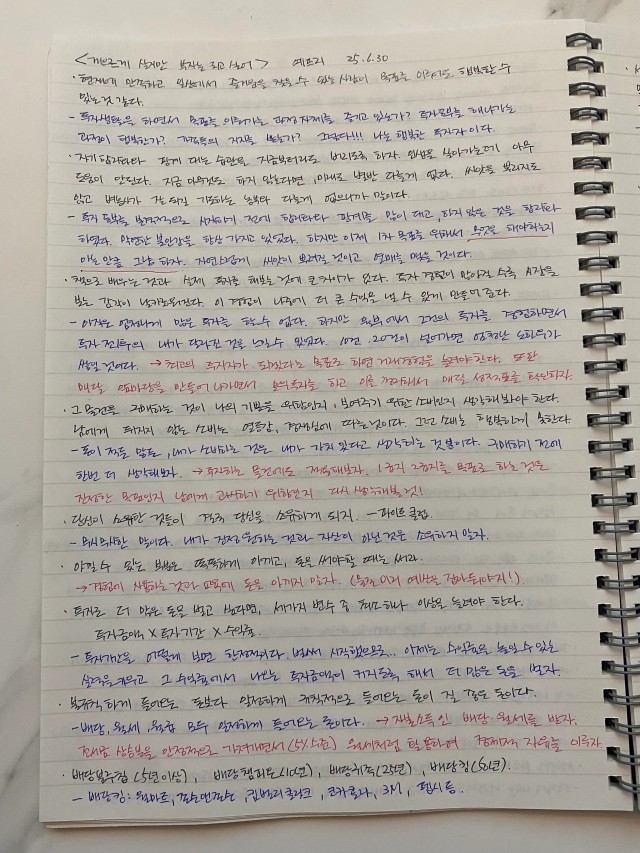 <게으르게 살지만 부자는 되고 싶어> 예프리 25.6.30
· 현재에 만족하고 일상에서 즐거움을 찾을 수 있는 사람이 목표를 이뤄도 행복할 수
있는 것 같다.
- 투자생활을 하면서 목표를 이뤄가는 과정 자체를 즐기고 있는가? 투자공부를 해나가는
과정이 행복한가? 가족들의 지지를 받는가? 그렇다!!! 나는 행복한 투자자이다.
· 자기합리화와 핑계 대는 습관을 지금부터라도 버리도록 하자. 인생을 살아가는데 아무
도움이 안된다. 지금 아무것도 하지 않는다면, 미래도 별반 다를게 없다. 씨앗을 뿌리지도
않고 벼농사가 잘 되길 기도하는 농부와 다를게 없으니까 말이다.
- 투자 공부를 본격적으로 시작하기 전에 합리화와 핑계를 많이 대고, 하지 않은 것을 합리화
하였다. 막연한 불안감을 항상 가지고 있었다. 하지만 이제 1차 목표를 위해서 무엇을 해야하는지
아는 만큼 그냥 하자. 자연스럽게 씨앗이 뿌려질 것이고 열매를 맺을 것이다.
· 책으로 배우는 것과 실제 투자를 해보는 것에 큰 차이가 없다. 투자 경험이 많아질 수록 시장을
보는 감각이 날카로워진다. 이 경험이 나중에 더 큰 수익을 낼 수 있게 만들어준다.
- 아직은 엄청나게 많은 투자를 할 수 없다. 하지만 월부에서 2건의 투자를 경험하면서
투자 전/후의 내가 달라진 것을 느낄 수 있었다. 10건, 20건이 넘어가면 엄청난 노하우가
쌓일 것이다. → 최고의 투자자가 되겠다는 목표로 하면 거래경험을 늘려야 한다. 또한
매달 앞마당을 만들어 나가면서 모의투자를 하고 이를 경험해서 매달 성장노트를 확인하자.
· 그 물건을 구매하는 것이 나의 기쁨을 위함인지, 보여주기 위한 소비인지 생각해봐야 한다.
남에게 뒤지지 않는 소비는 열등감, 경쟁심에 따르는 것이다. 그런 소비는 행복하게 못한다
- 돈이 적든 많든, 내가 소비하는 것은 내가 가치있다고 생각하는 것 뿐이다. 구매하기 전에
한번 더 생각해보자. → 투자하는 물건에도 적용해보자. 1호기 2호기를 목표로 하는 것은
진정한 목표인지 남에게 과시하기 위함인지 다시 생각해볼 것!
· 당신이 소유한 것들이 결국 당신을 소유하게 되지. - 파이트 클럽
- 무시무시한 말이다. 내가 진정 원하는 것과 자산이 아닌 것은 소유하지 않자.
· 아낄 수 있는 부분은 똑똑하게 아끼고, 돈을 써야할 때는 써라.
→ 경험에 사용하는 것과 교육에 돈을 아끼지 말자. (물론 미리 예산을 잡아둬야지!)
· 투자로 더 많은 돈을 벌고 싶다면, 세가지 변수 중 최소 하나 이상을 늘려야 한다.
투자금액 X 투자기간 X 수익률
- 투자기간을 어떻게 보면 한정적이다. 벌써 시작했으므로.. 이제는 수익률을 높일 수 있는
실력을 키우고 그 수익률에서 나오는 투자금액이 커지도록 해서 더 많은 돈을 벌자.
· 불규칙하게 들어오는 돈보다 안정하게 규칙적으로 들어오는 돈이 질 좋은 돈이다.
- 배당, 월세, 월급 모두 안정하게 들어오는 돈이다. → 자본소득인 배당 월세를 받자.
전세금 상승분을 안정적으로 가져가면서(5% 수준) 월세처럼 활용하며 경제적 자유를 이루자.
· 배당블루칩(5년이상), 배당챔피온(10년), 배당귀족(25년), 배당킹(50년).
- 배당킹: 월마트, 존슨앤존슨, 킴벌리클라크, 코카콜라, 3M, 펩시 등.